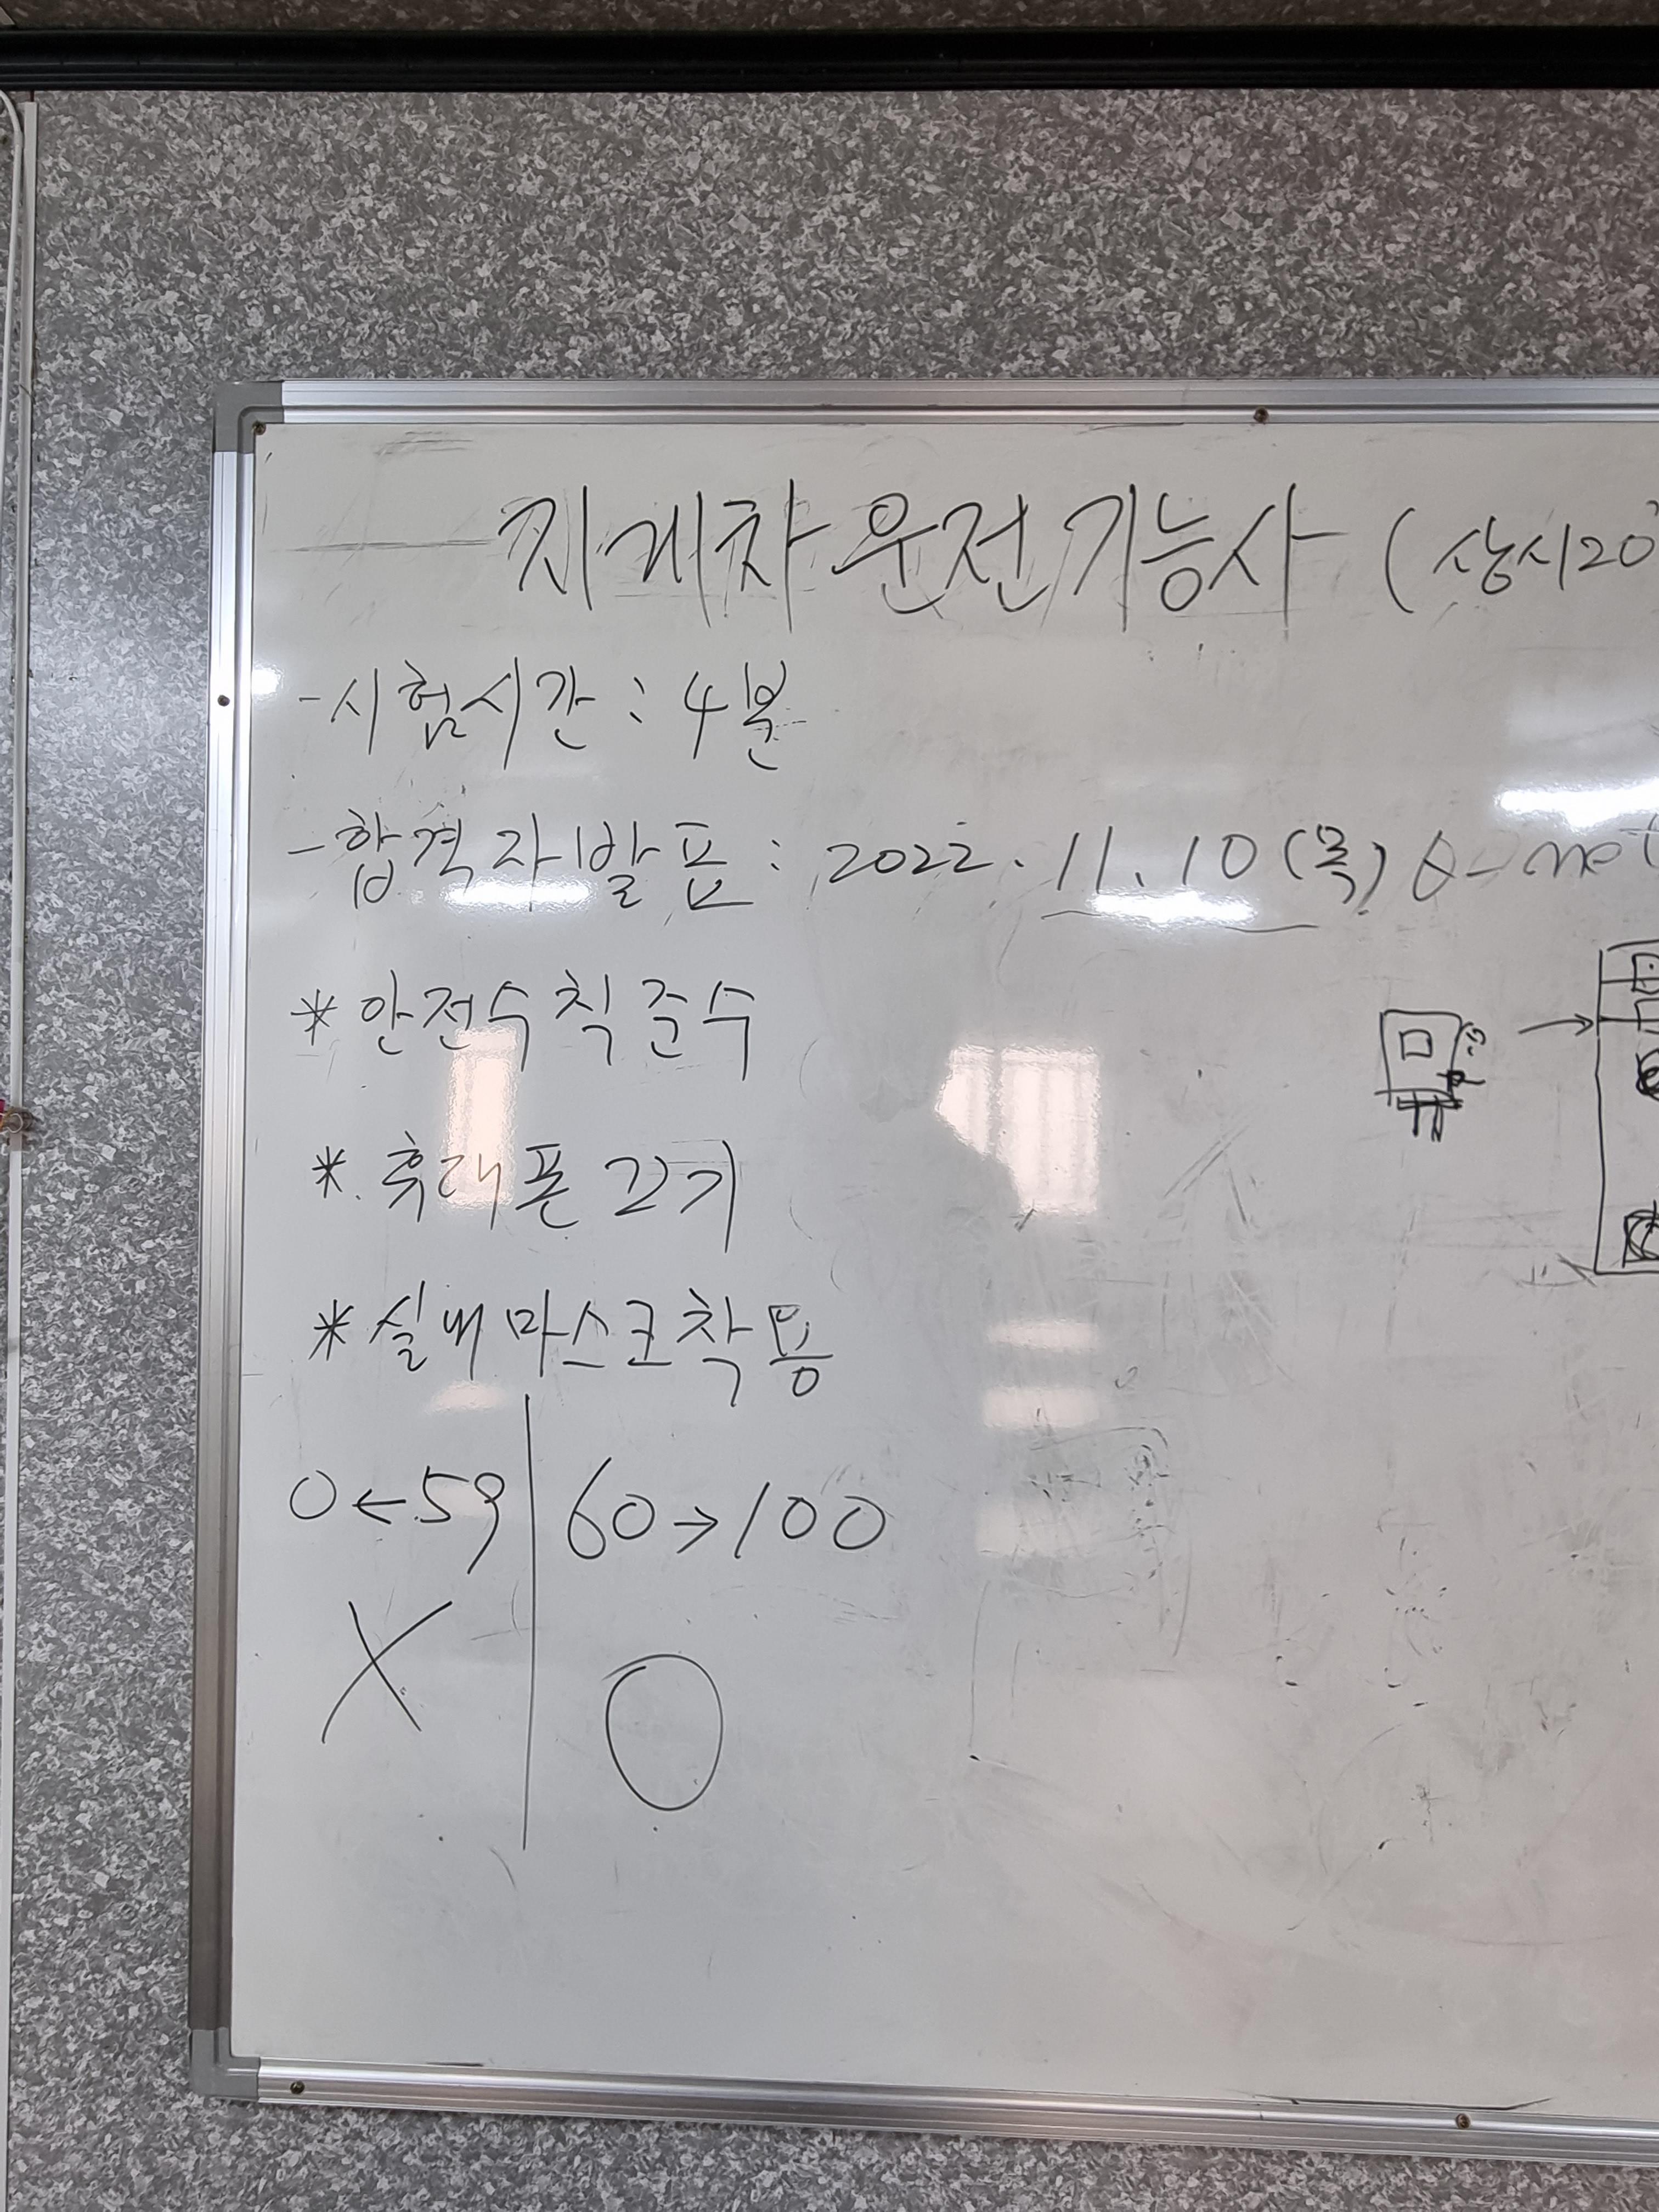 지게차운전기능사 (상시20
-시험시간 : 4분
-합격자발표 : 2022. 11. 10 (목) Q-net
*안전수칙준수
*. 휴대폰끄기
*실내마스크착용
0←59 | 60→100
X O